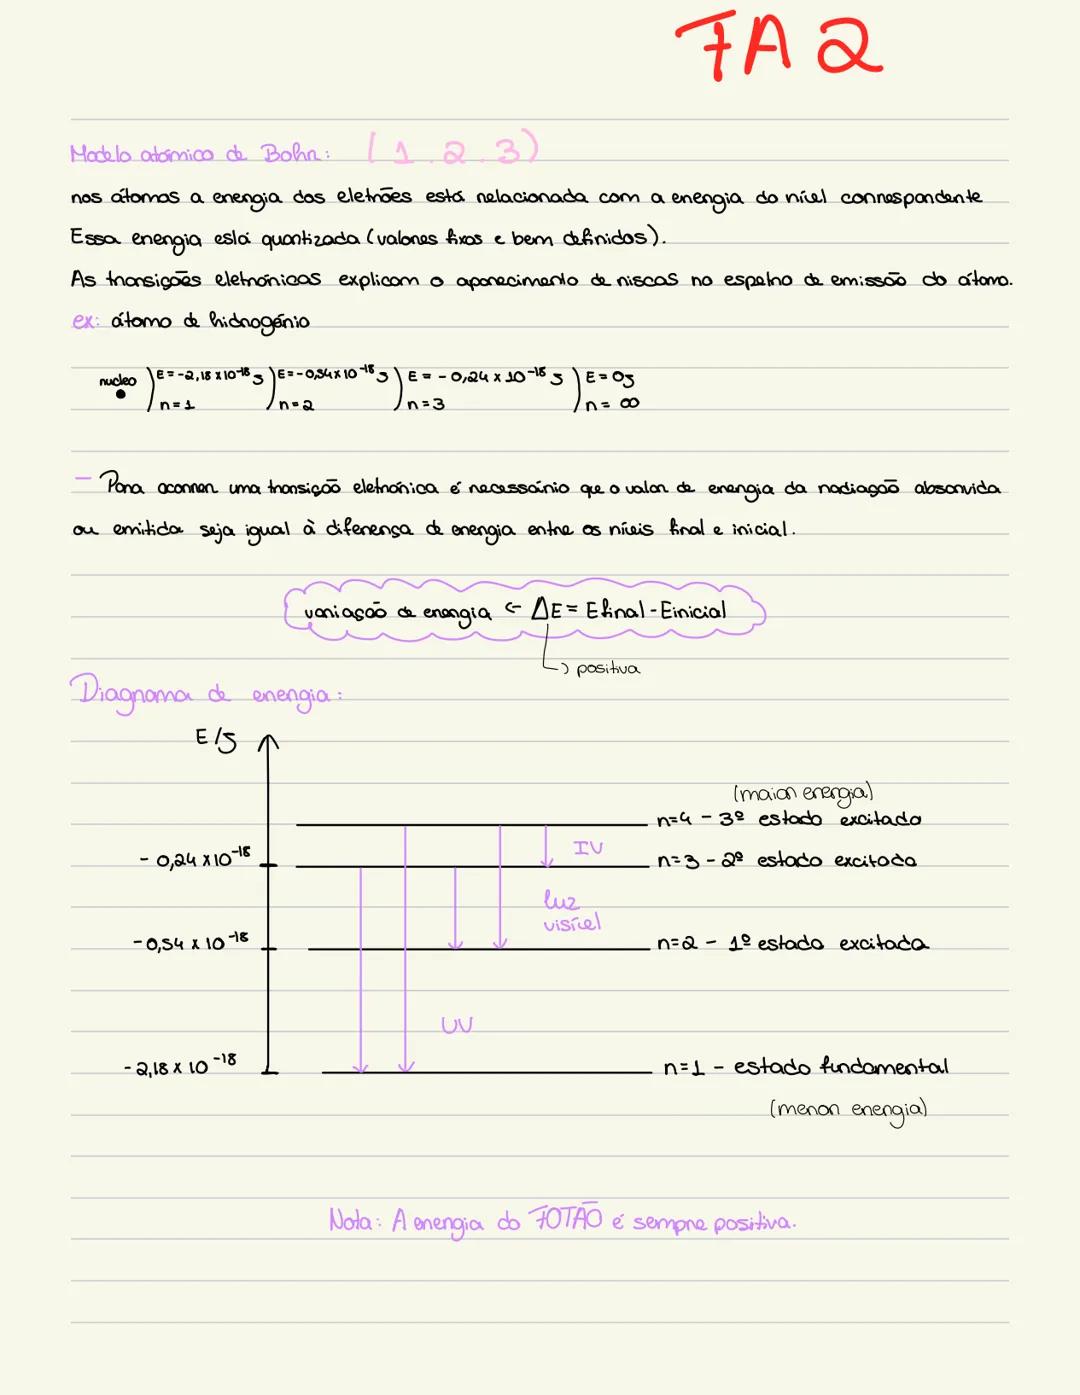 FA 2
Modelo atómico de Bohr: (1.2.3)
nos átomos a energia dos eletrões está relacionada com a energia do nível correspondente
Essa energia está quantizada (valores fixos e bem definidos).
As transições eletrónicas explicam o aparecimento de riscas no espetro de emissão do átomo.
ex: átomo de hidrogénio
nucleo E=-2,18 x 10⁻¹⁸ J E=-0,54 x 10⁻¹⁸ J E = -0,24 x 10⁻¹⁸ J E=0J
n=1 n=2 n=3 n= ∞
- Para ocorrer uma transição eletrónica é necessário que o valor de energia da radiação absorvida
ou emitida seja igual à diferença de energia entre os níveis final e inicial.
variação de energia ← ΔE = Efinal - Einicial
↳ positiva
Diagrama de energia:
E/J
(maior energia)
n=4 - 3º estado excitado
IV
- 0,24 x 10⁻¹⁸ n=3 - 2º estado excitado
luz
visível
- 0,54 x 10⁻¹⁸ n=2 - 1º estado excitado
UV
- 2,18 x 10⁻¹⁸ n=1 - estado fundamental
(menor energia)
Nota: A energia do FOTÃO é sempre positiva.